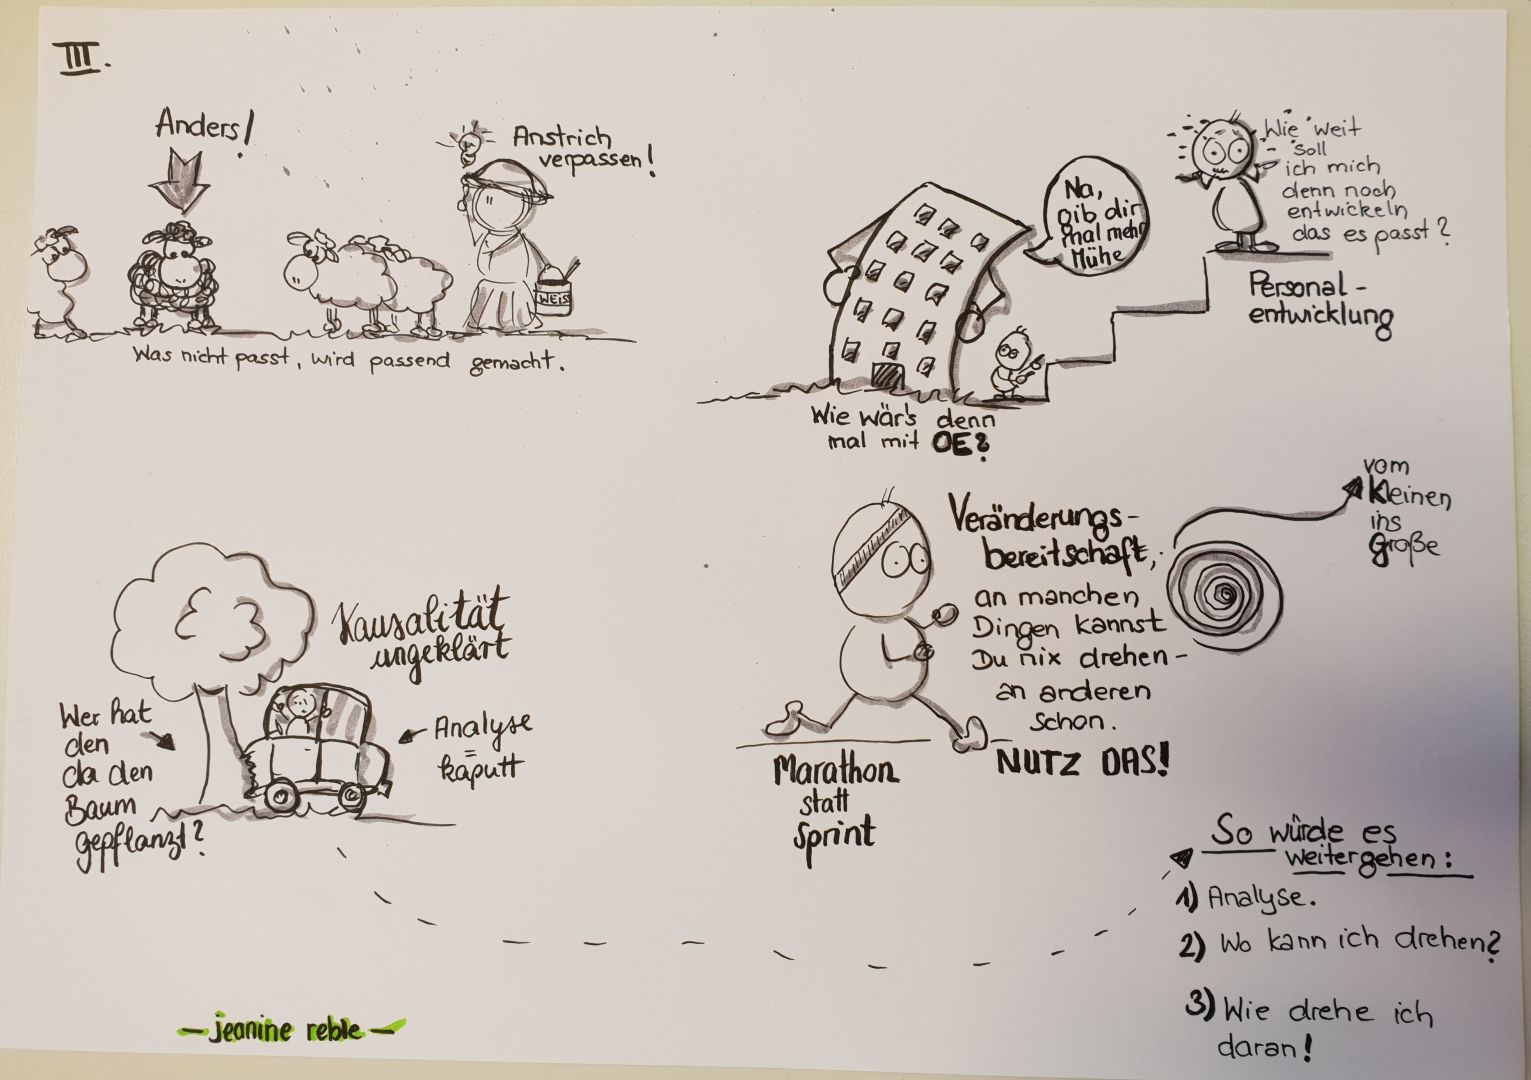 III.
Anders!
Anstrich
verpassen!
WEISS
Was nicht passt, wird passend gemacht.
Na,
gib dir
mal mehr
Mühe
Wie weit
soll
ich mich
denn noch
entwickeln
das es passt?
Personal-
entwicklung
Wie wär's denn
mal mit OE?
Kausalität
ungeklärt
Wer hat
den
da den
Baum
gepflanzt?
Analyse
=
kaputt
Veränderungs-
bereitschaft,
an manchen
Dingen kannst
Du nix drehen-
an anderen
schon.
NUTZ DAS!
vom
Kleinen
ins
Große
Marathon
statt
Sprint
So würde es
weitergehen:
1) Analyse.
2) Wo kann ich drehen?
3) Wie drehe ich
daran!
- jeanine reble -